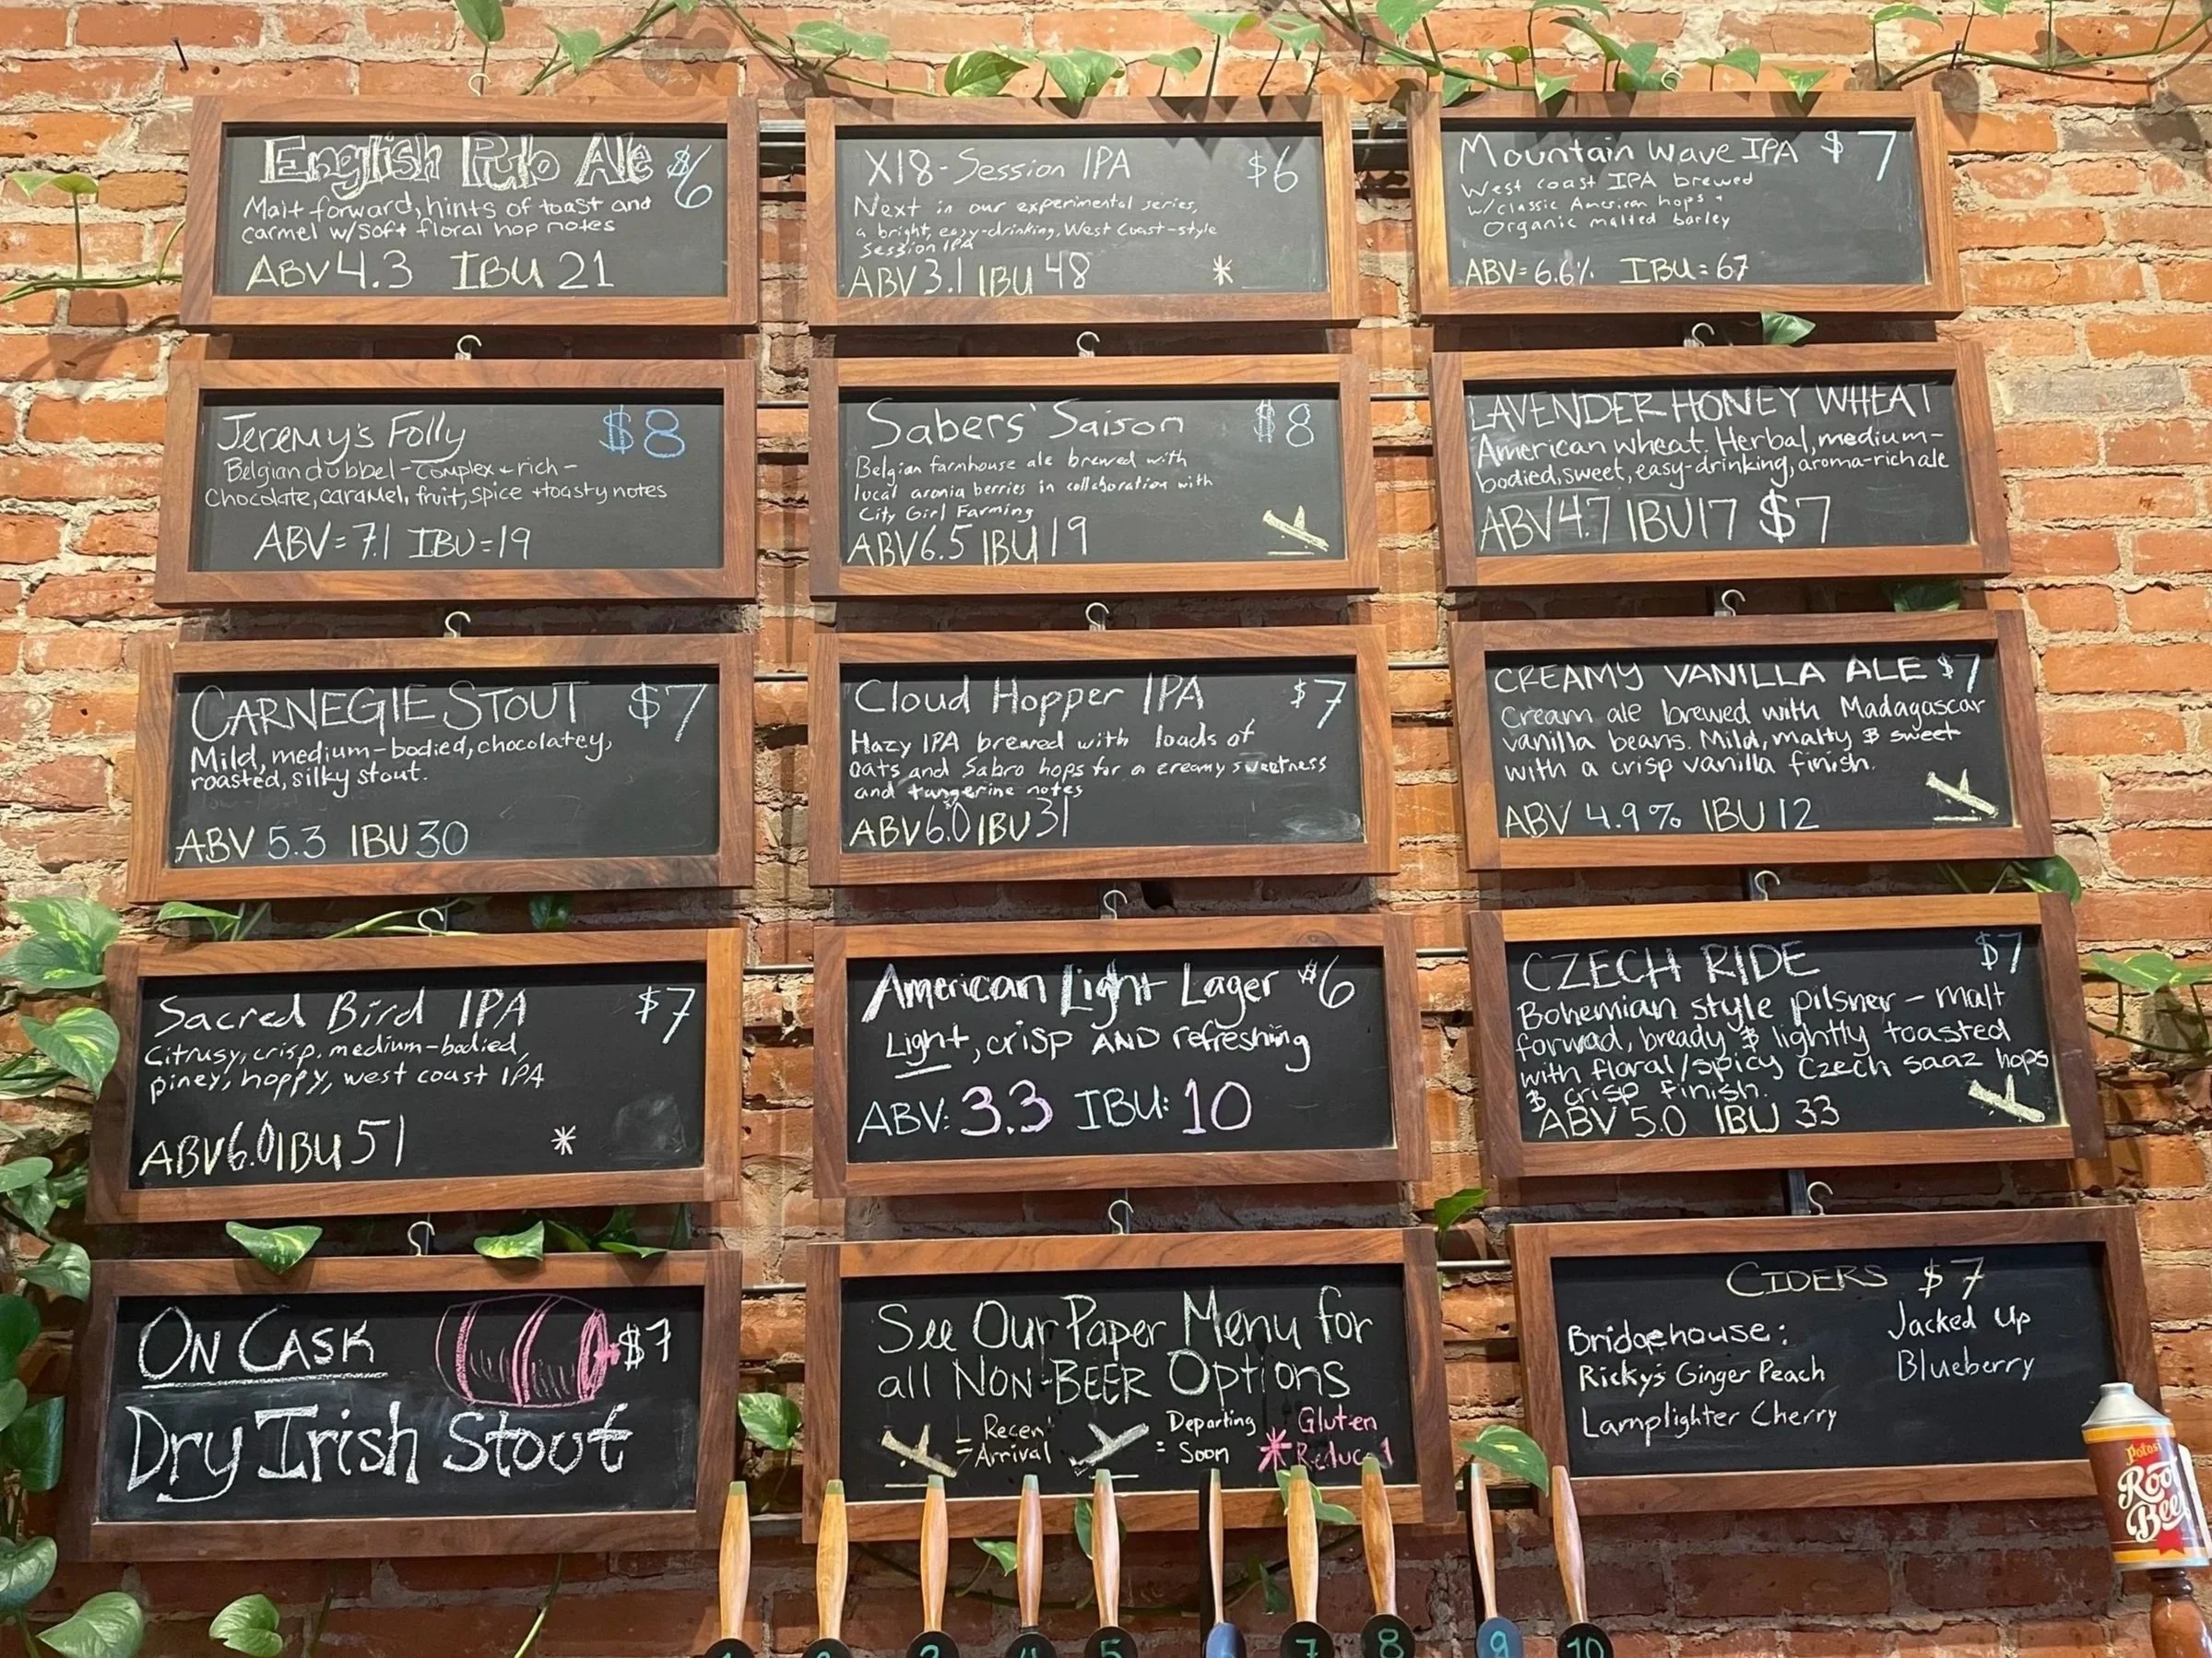 English Pub Ale $6
Malt forward, hints of toast and
carmel w/soft floral hop notes
ABV 4.3 IBU 21
X18-Session IPA $6
Next in our experimental series,
a bright, easy-drinking, West Coast-style
session IPA
ABV 3.1 IBU 48 *
Mountain Wave IPA $7
West coast IPA brewed
w/classic American hops +
Organic malted barley
ABV=6.6% IBU=67
Jeremy's Folly $8
Belgian dubbel - complex + rich -
Chocolate, caramel, fruit, spice + toasty notes
ABV=7.1 IBU=19
Sabers' Saison $8
Belgian farmhouse ale brewed with
local aronia berries in collaboration with
City Girl Farming
ABV 6.5 IBU 19
LAVENDER HONEY WHEAT
American wheat. Herbal, medium-
bodied, sweet, easy-drinking, aroma-rich ale
ABV 4.7 IBU 17 $7
CARNEGIE STOUT $7
Mild, medium-bodied, chocolatey,
roasted, silky stout.
ABV 5.3 IBU 30
Cloud Hopper IPA $7
Hazy IPA brewed with loads of
oats and Sabro hops for a creamy sweetness
and tangerine notes
ABV 6.0 IBU 31
CREAMY VANILLA ALE $7
Cream ale brewed with Madagascar
vanilla beans. Mild, malty & sweet
with a crisp vanilla finish.
ABV 4.9% IBU 12
Sacred Bird IPA $7
Citrusy, crisp, medium-bodied,
piney, hoppy, west coast IPA
ABV 6.0 IBU 51 *
American Light Lager $6
Light, crisp AND refreshing
ABV: 3.3 IBU: 10
CZECH RIDE $7
Bohemian style pilsner - malt
forwad, bready & lightly toasted
with floral/spicy Czech saaz hops
& crisp finish.
ABV 5.0 IBU 33
ON CASK $7
Dry Irish Stout
See Our Paper Menu for
all NON-BEER Options
= Recent
Arrival
Departing
= Soon
* Gluten
Reduced
CIDERS $7
Bridgehouse:
Ricky's Ginger Peach
Lamplighter Cherry
Jacked Up
Blueberry
Potosi
Root
Beer
5 7 8 9 10